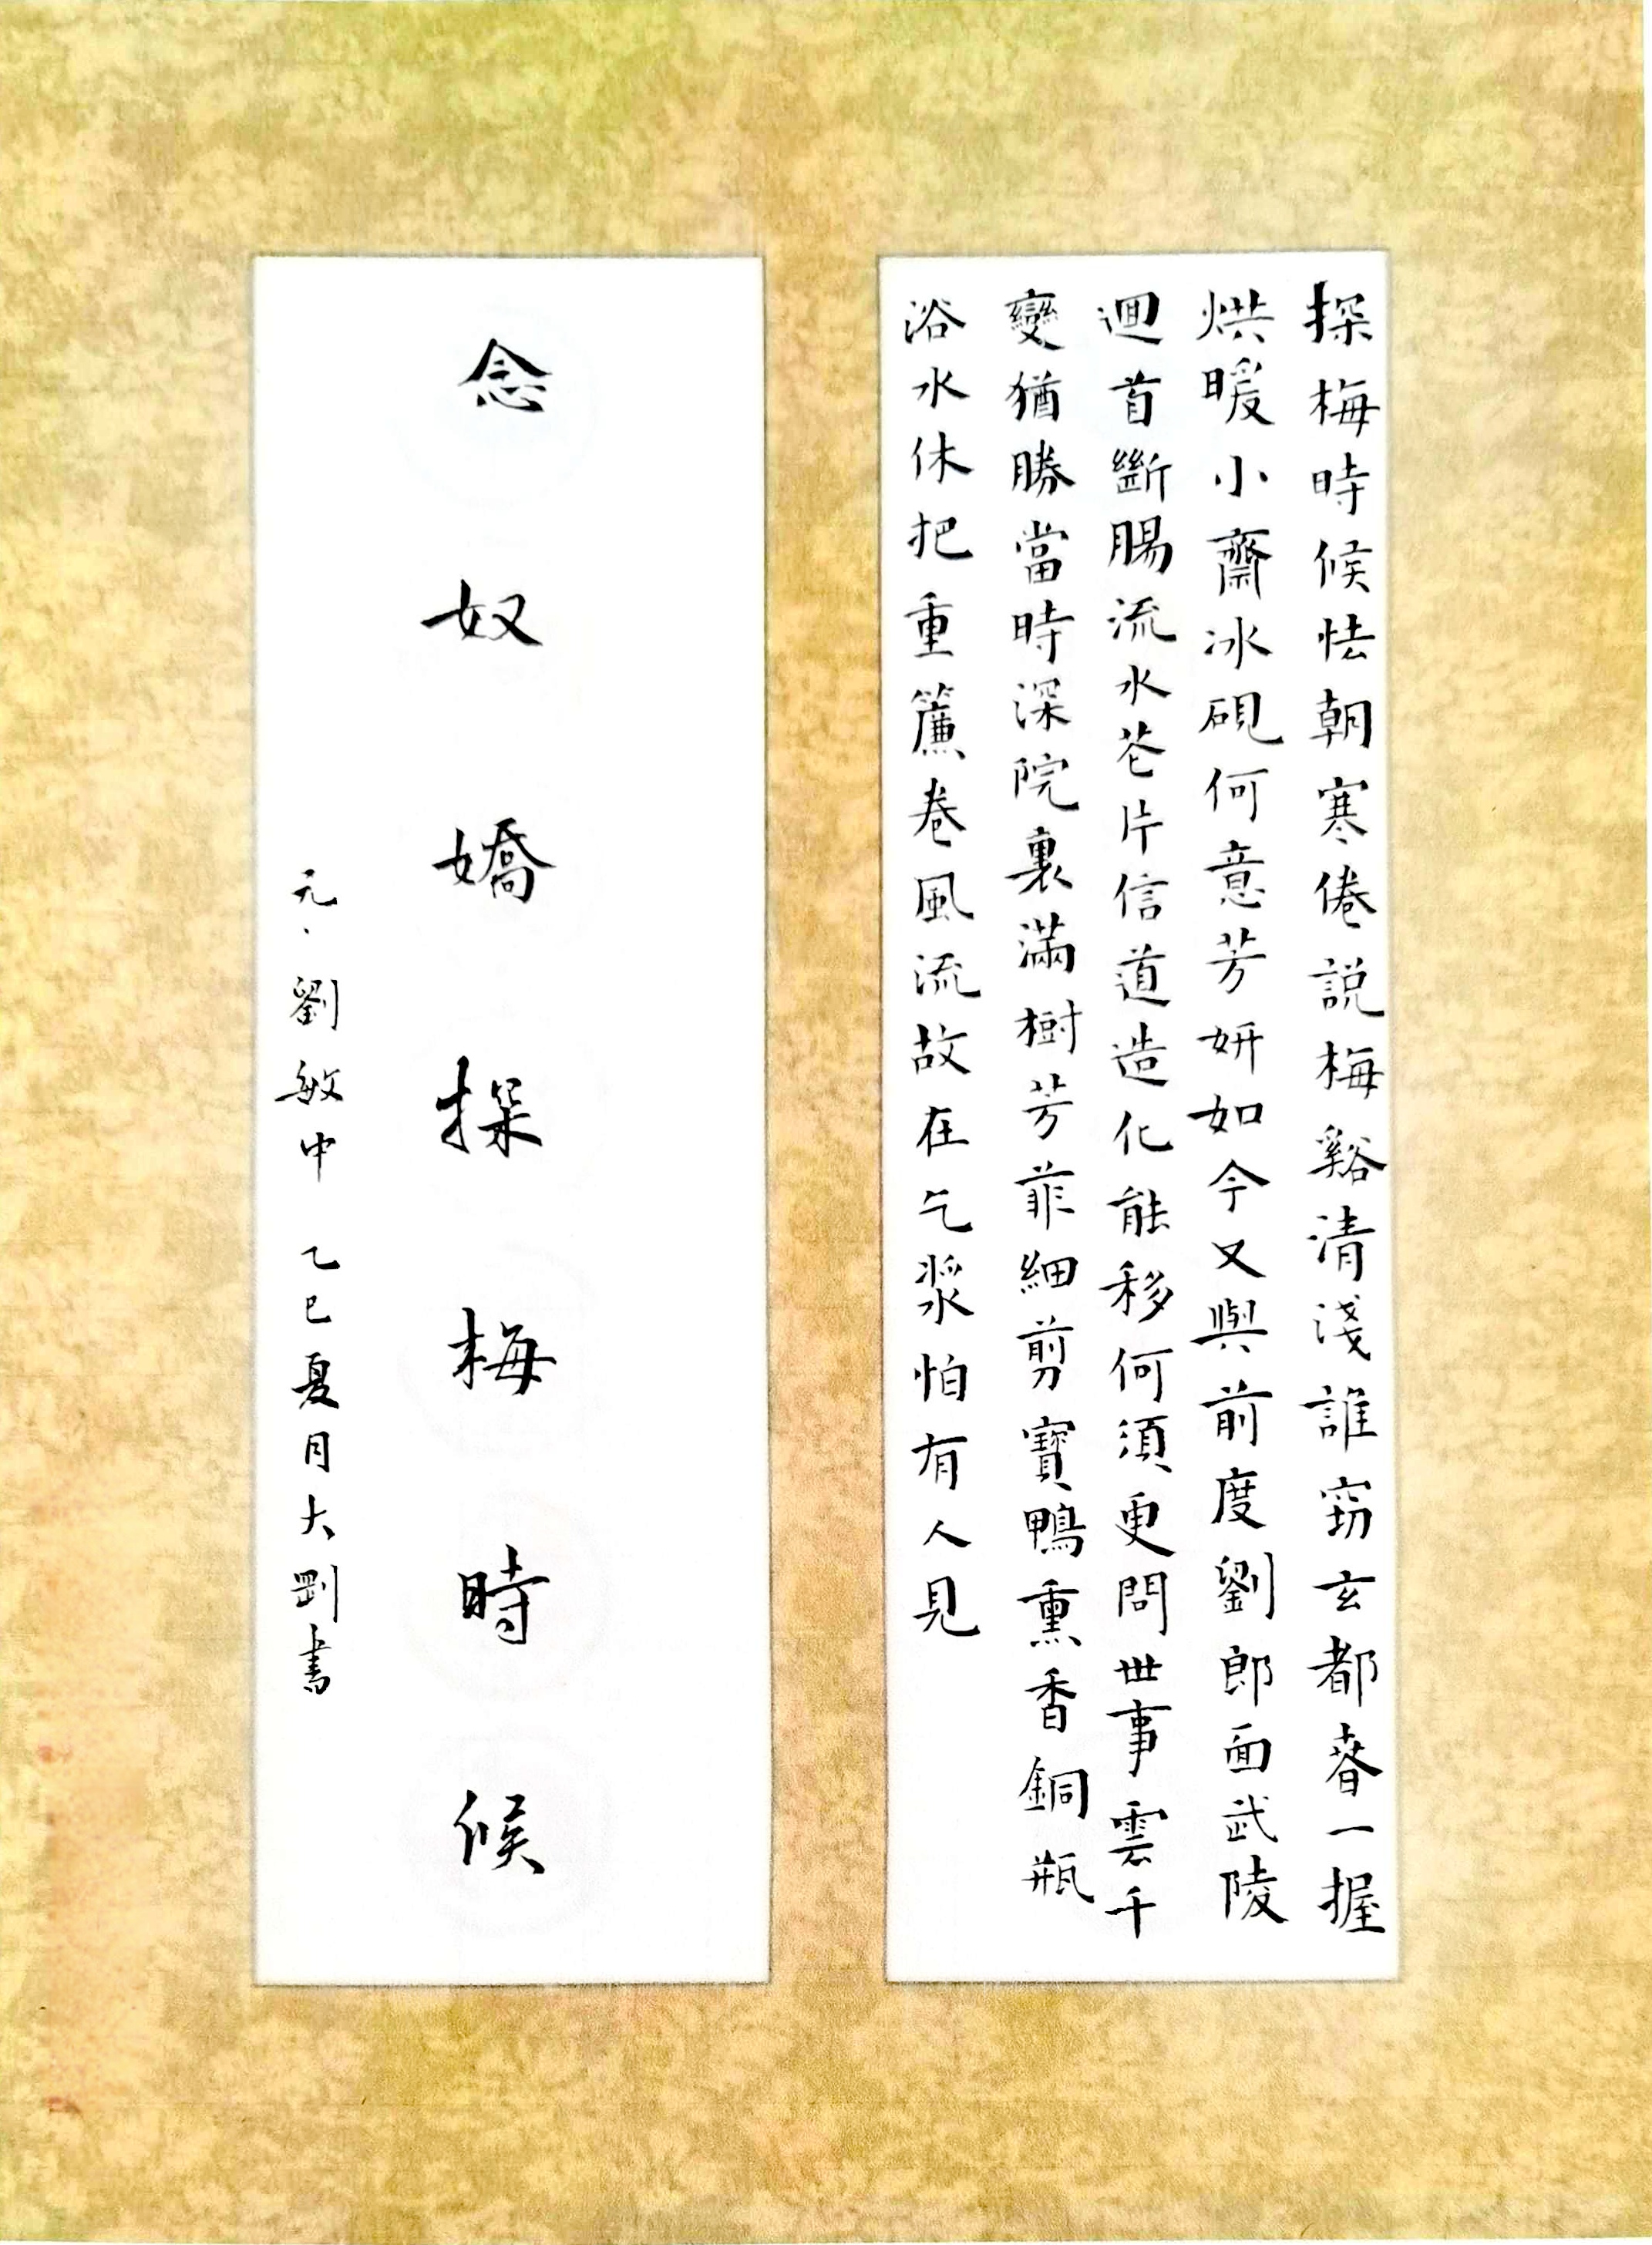 探梅時候怯朝寒倦説梅谿清淺誰窃玄都春一握
烘暖小齋冰硯何意芳妍如今又與前度劉郎面武陵
迴首斷腸流水苍片信道造化能移何須更問世事雲千
變猶勝當時深院裏滿樹芳菲細剪寶鴨熏香銅瓶
浴水休把重簾卷風流故在乞漿怕有人見
念奴嬌探梅時候
元、劉敏中 乙巳夏月大剛書